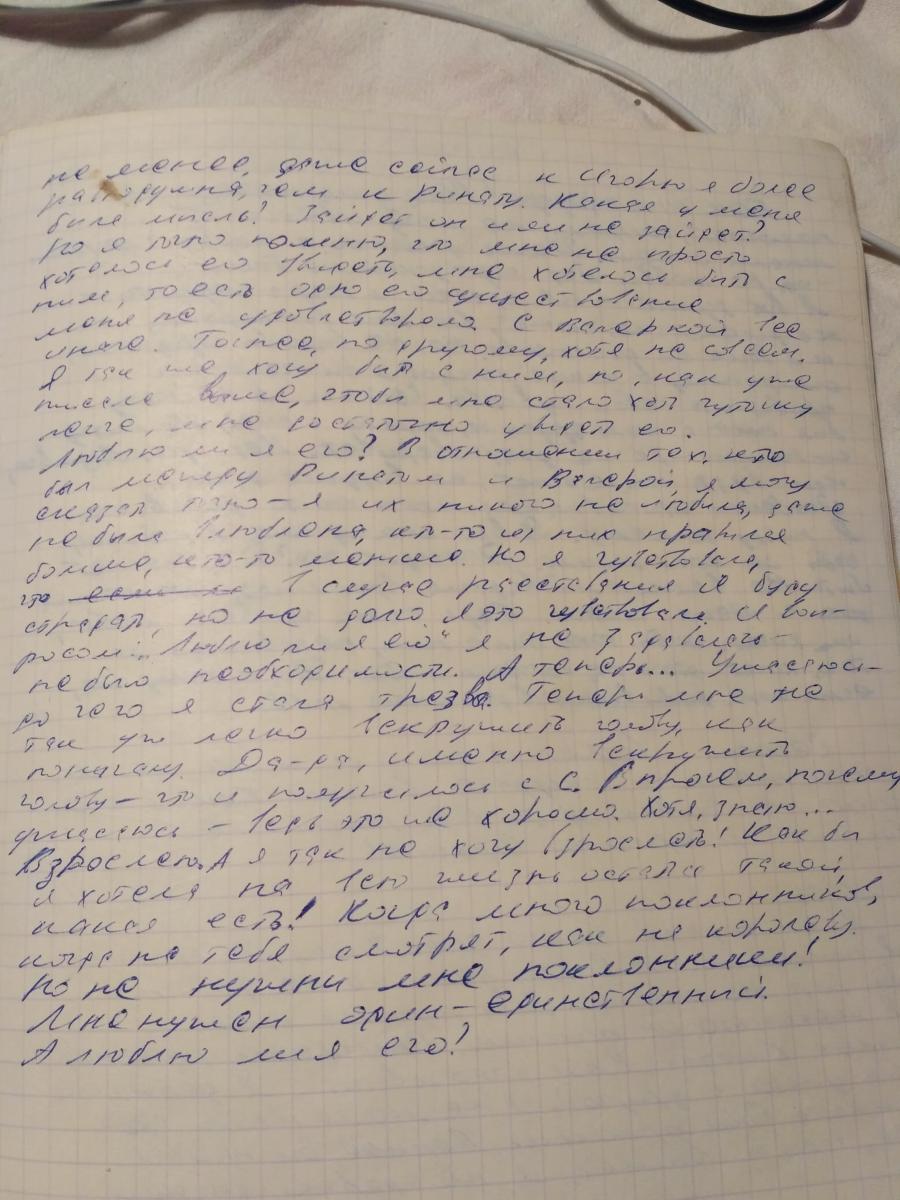 не менее, даже сейчас к Игорю я более
равнодушна, чем к Ринату. Какая у меня
была мысль? Зайдет он или не зайдет?
Но я точно помню, что мне не просто
хотелось его увидеть, мне хотелось быть с
ним, то есть одно его существование
меня не удовлетворяло. С Валеркой все
иначе. Точнее, по другому, хотя не совсем.
Я так же, хочу быть с ним, но, как уже
писала выше, чтобы мне стало хоть чуточку
легче, мне достаточно увидеть его.
Люблю ли я его? В отношении тех, кто
был между Ринатом и Валерой, я могу
сказать точно – я их никого не любила, даже
не была влюблена, кто-то из них нравился
больше, кто-то меньше. Но я чувствовала,
что в случае расставания я буду
страдать, но не долго. Я это чувствовала. И воп-
росом: „Люблю ли я его" я не задавалась –
не было необходимости. А теперь... Ужасаюсь –
до чего я стала трезва. Теперь мне не
так уж легко вскружить голову, как
поначалу. Да-да, именно вскружить
голову – что и получилось с С. Впрочем, почему
ужасаюсь – ведь это же хорошо. Хотя, знаю...
Взрослею. А я так не хочу взрослеть! Как бы
я хотела на всю жизнь остаться такой,
какая есть! Когда много поклонников,
когда на тебя смотрят, как на королеву.
Но не нужны мне поклонники!
Мне нужен один-единственный.
А люблю ли я его!